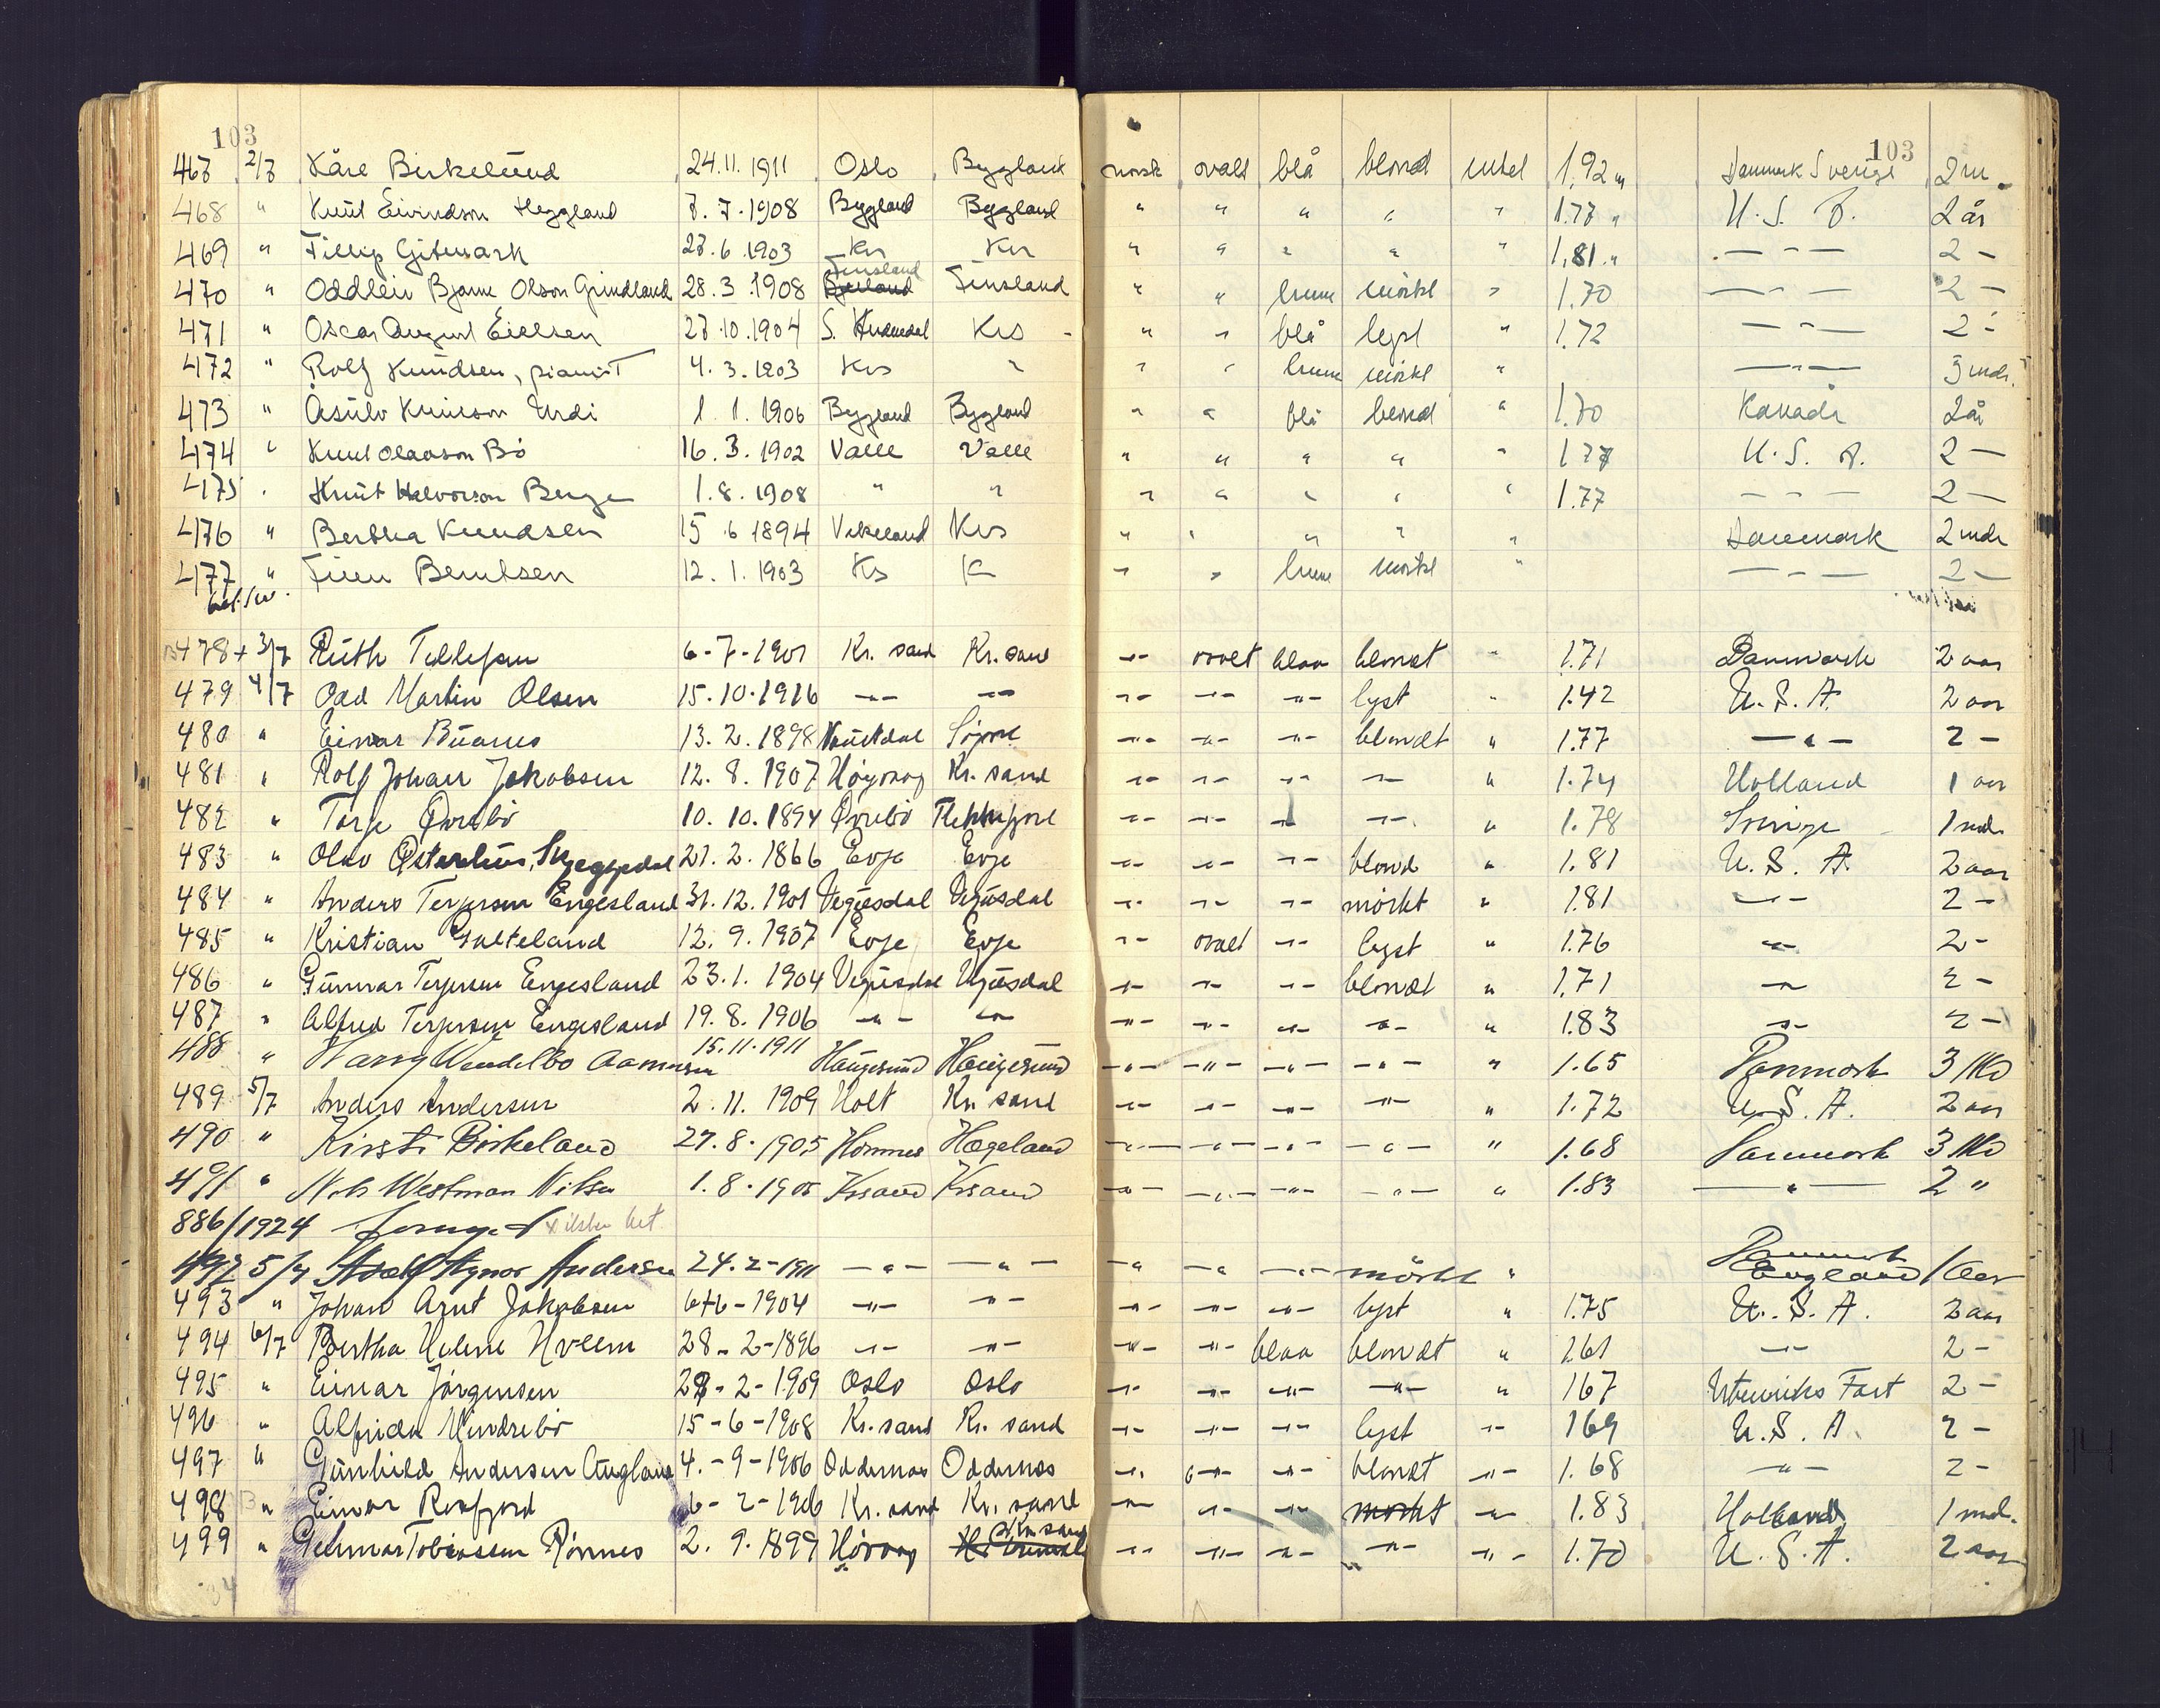 103 103
467 2/7 Kåre Birkelund 24.11.1911 Oslo Bygland norsk ovalt blå blond intet 1,92 m Danmark Sverige 2 m.
468 " Knut Eivindson Heggland 7.7.1908 Bygland Bygland " " " " " 1.77 " U.S.A. 2 år
469 " Fillip Gitmark 27.6.1903 Krs Krs " " " " " 1,81 " — " — 2 —
470 " Oddleiv Bjarne Olson Grindland 28.3.1908 Finsland Finsland " " brune mörkt " 1.70 — " — 2 —
471 " Oscar August Eielsen 27.10.1904 S. Audnedal Krs " " blå lyst " 1.72 — " — 2 —
472 " Rolf Knudsen, pianist 4.3.1903 Krs " " " brune mörkt " — " — 3 mdr.
473 " Åsulv Knutson Urdi 1.1.1906 Bygland Bygland " " blå blond " 1.70 Kanada 2 år
474 " Knut Olavson Bö 16.3.1902 Valle Valle " " " " " 1.77 U.S.A. 2 —
475 " Knut Halvorson Berge 1.8.1908 " " " " " " " 1.77 — " — 2 —
476 " Bertha Knudsen 15.6.1894 Vikeland Krs " " " " " Danmark 2 mdr
477 " Finn Berntsen 12.1.1903 Ks K " " brune mörkt " — " — 2 —
478 + 3/7 Ruth Tellefsen 6-7-1901 Kr. sand Kr. sand —"— ovalt blaa blondt " 1.71 Danmark 2 aar
479 4/7 Odd Martin Olsen 15.10.1916 —"— —"— —"— —"— —"— lyst " 1.42 U.S.A. 2 aar
480 " Einar Buanes 13.2.1898 Naustdal Søgne —"— —"— —"— blondt " 1.77 —"— 2 —
481 " Rolf Johan Jakobsen 12.8.1907 Høgvag Kr. sand —"— —"— —"— —"— " 1.74 Holland 1 aar
482 " Torje Øvrebö 10.10.1894 Øvrebö Flekkefjord —"— —"— —"— —"— " 1.78 Sverige 1 md.
483 " Olav Østerhus, Skjeggedal 21.2.1866 Evje Evje —"— —"— —"— blond " 1.81 U.S.A. 2 aar
484 " Anders Terjesen Engesland 31.12.1901 Vegusdal Vegusdal —"— —"— —"— mörkt " 1.81 —"— 2 —
485 " Kristian Galteland 12.9.1907 Evje Evje —"— ovalt —"— lyst " 1.76 —"— 2 —
486 " Gunnar Terjesen Engesland 23.1.1904 Vegusdal Vegusdal —"— —"— —"— blondt " 1.71 —"— 2 —
487 " Alfred Terjesen Engesland 19.8.1906 —"— —"— —"— —"— —"— —"— " 1.83 —"— 2 —
488 " Harry Wendelbo Aamunsen 15.11.1911 Haugesund Haugesund —"— —"— —"— —"— " 1.65 Danmark 3 Md
489 5/7 Anders Andersen 2.11.1909 Holt Kr. sand —"— —"— —"— —"— " 1.72 U.S.A. 2 aar
490 " Kirsti Birkeland 27.8.1905 Homme Hægeland —"— —"— —"— —"— " 1.68 Danmark 3 Md
491 " Nels Westman Nilsen 1.8.1905 Krsand Krsand —"— —"— —"— —"— " 1.83 —"— 2 "
886/1924
492 5/7 Adolf Agnar Andersen 24.2-1911 —"— —"— —"— —"— —"— mörkt " Danmark England 1 Aar
493 " Johan Arnt Jakobsen 6-6-1904 —"— —"— —"— —"— —"— lyst " 1.75 U.S.A. 2 aar
494 6/7 Bertha Helene Hveem 28-2-1896 —"— —"— —"— —"— blaa blondt " 1.61 —"— 2 —
495 " Einar Jörgensen 28-2-1909 Oslo Oslo —"— —"— —"— —"— " 167 Utenriks Fart 2 —
496 " Alfrida Vindrebö 15-6-1908 Kr. sand Kr. sand —"— —"— —"— lyst —"— 169 U.S.A. 2 —
497 " Gunhild Andersen Augland 4.-9-1906 Oddernes Oddernes —"— —"— —"— blondt —"— 1.68 —"— 2 —
498 " Einar Rosfjord 6-2-1906 Kr. sand Kr. sand —"— —"— —"— mörkt —"— 1.83 Holland 1 md.
499 " Gelmar Tobiassen Rönnes 2.9.1899 Hövåg Kr. sand —"— —"— —"— —"— —"— 1.70 U.S.A. 2 aar